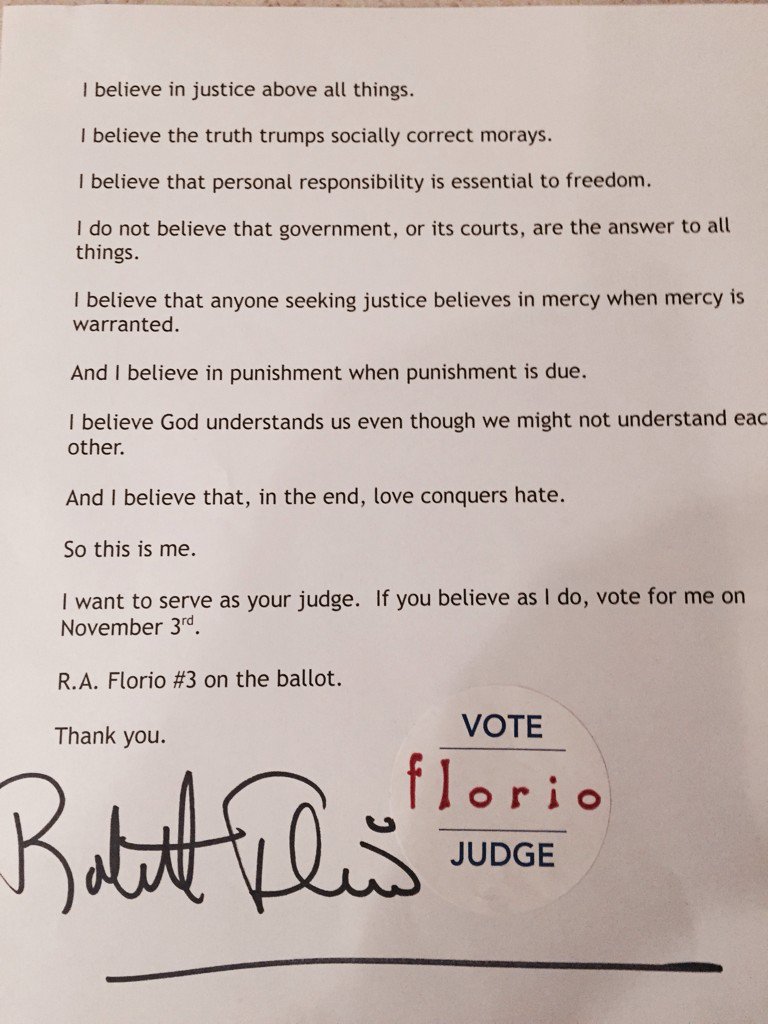 I believe in justice above all things.
I believe the truth trumps socially correct morays.
I believe that personal responsibility is essential to freedom.
I do not believe that government, or its courts, are the answer to all
things.
I believe that anyone seeking justice believes in mercy when mercy is
warranted.
And I believe in punishment when punishment is due.
I believe God understands us even though we might not understand eac
other.
And I believe that, in the end, love conquers hate.
So this is me.
I want to serve as your judge. If you believe as I do, vote for me on
November 3rd.
R.A. Florio #3 on the ballot.
Thank you.
VOTE
florio
JUDGE